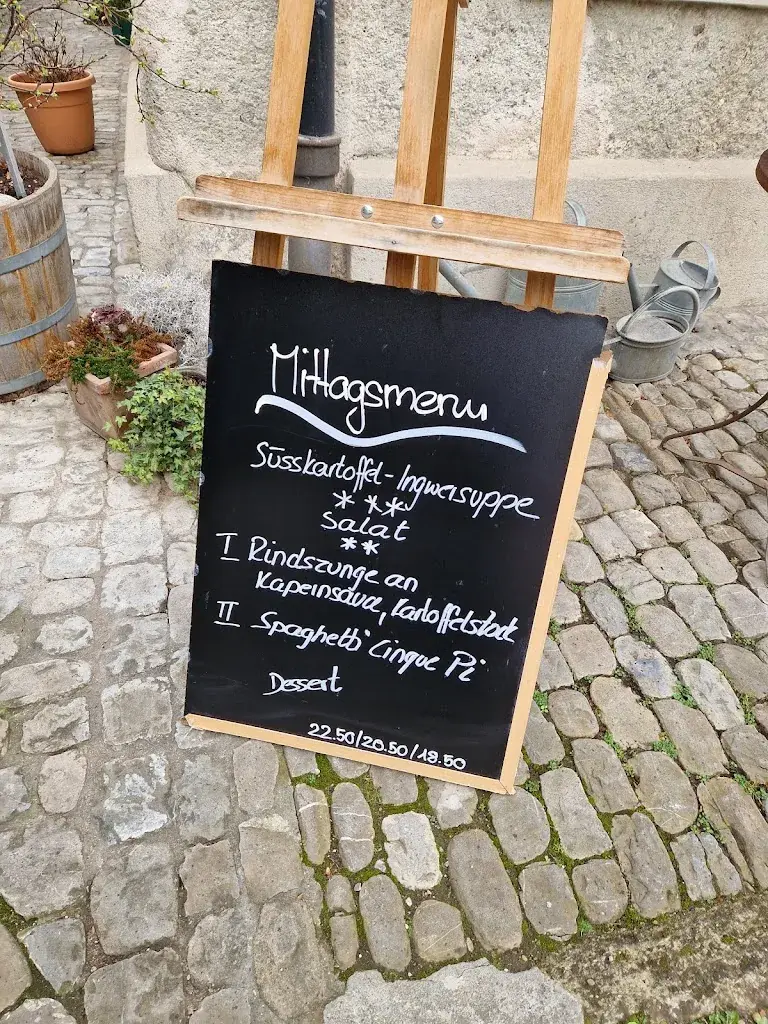 Mittagsmenu
Süsskartoffel-Ingwersuppe
* **
Salat
**
I Rindszunge an
Kapernsauce, Kartoffelstock
II Spaghetti Cinque Pi
Dessert
22.50/20.50/18.50